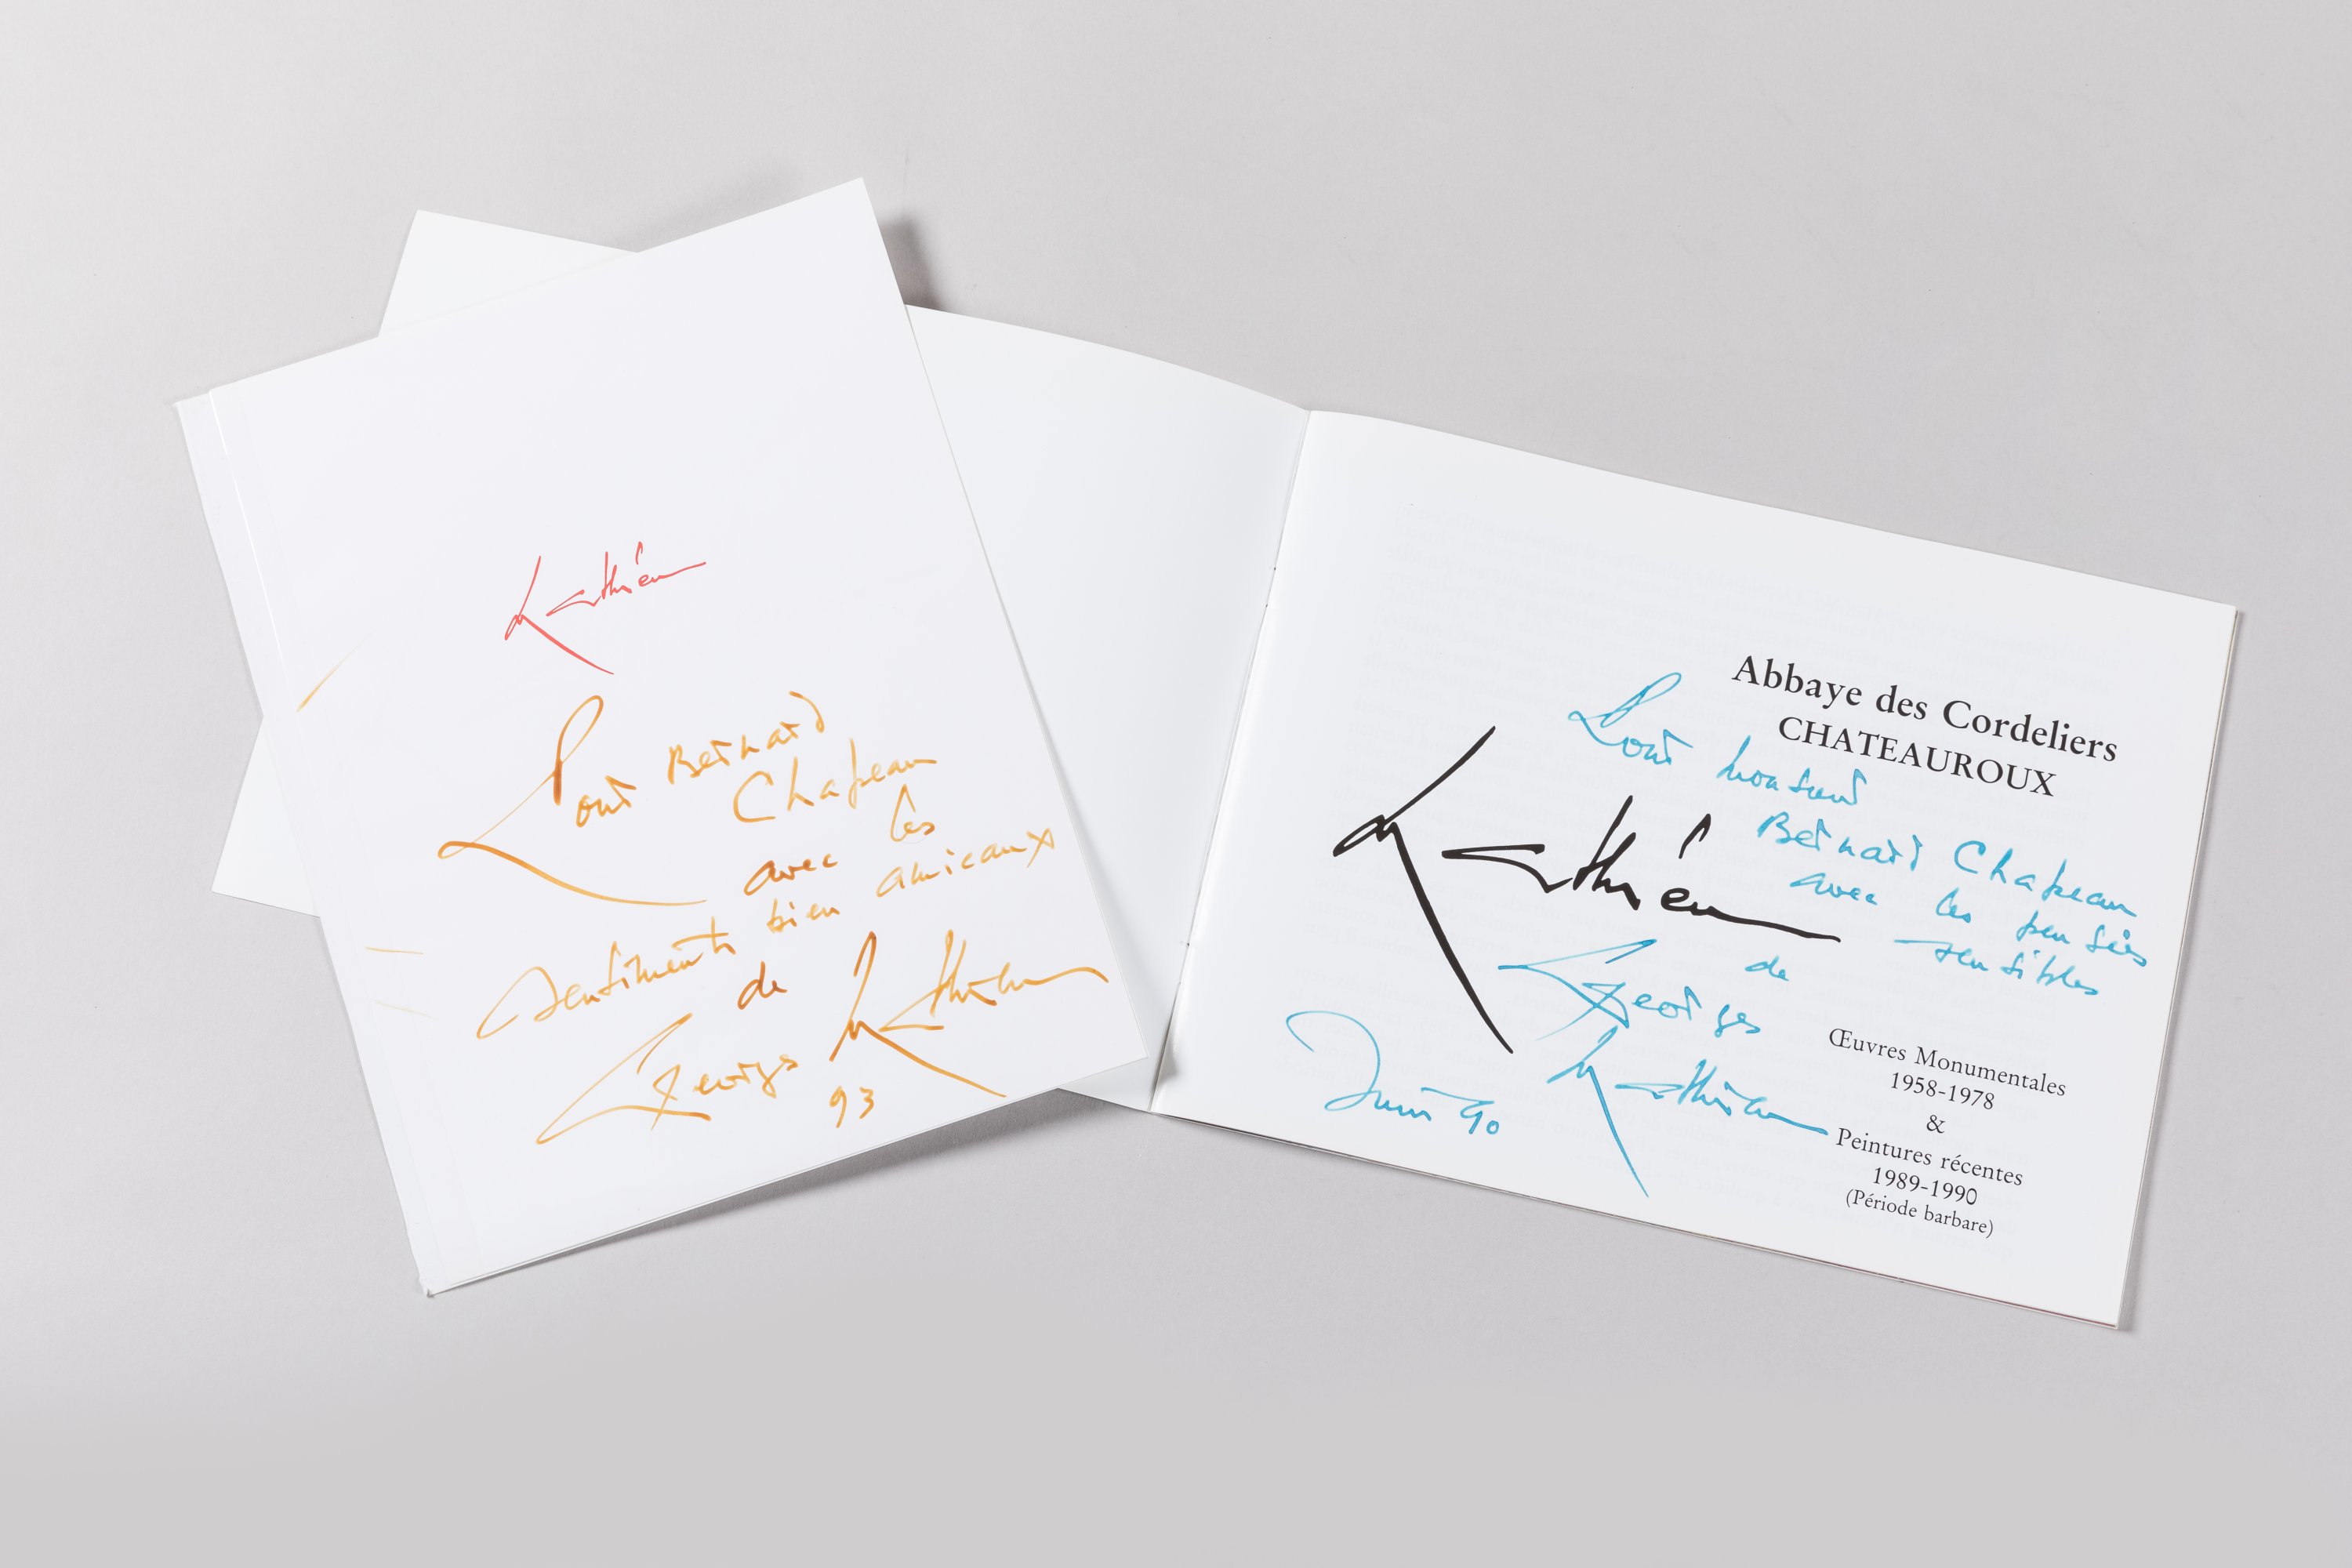 Mathieu
Pour Bernard
Chapeau
avec les
sentiments bien amicaux
de
Georges Mathieu
93
Abbaye des Cordeliers
CHATEAUROUX
Mathieu
Pour Monsieur
Bernard Chapeau
avec les pensées
sensibles
de
Georges
Mathieu
Juin 90
Œuvres Monumentales
1958-1978
&
Peintures récentes
1989-1990
(Période barbare)